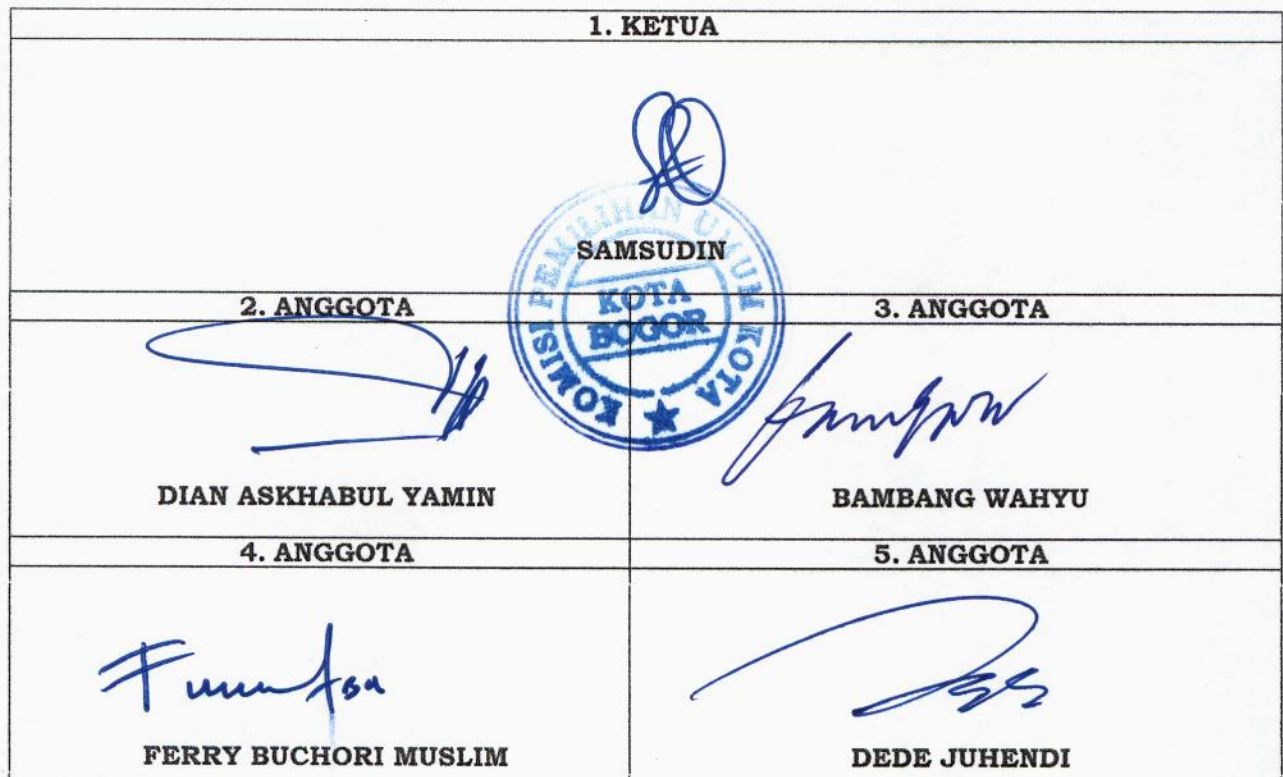 1. KETUA
SAMSUDIN
KOMISI PEMILIHAN UMUM KOTA
KOTA
BOGOR
2. ANGGOTA
3. ANGGOTA
DIAN ASKHABUL YAMIN
BAMBANG WAHYU
4. ANGGOTA
5. ANGGOTA
FERRY BUCHORI MUSLIM
DEDE JUHENDI